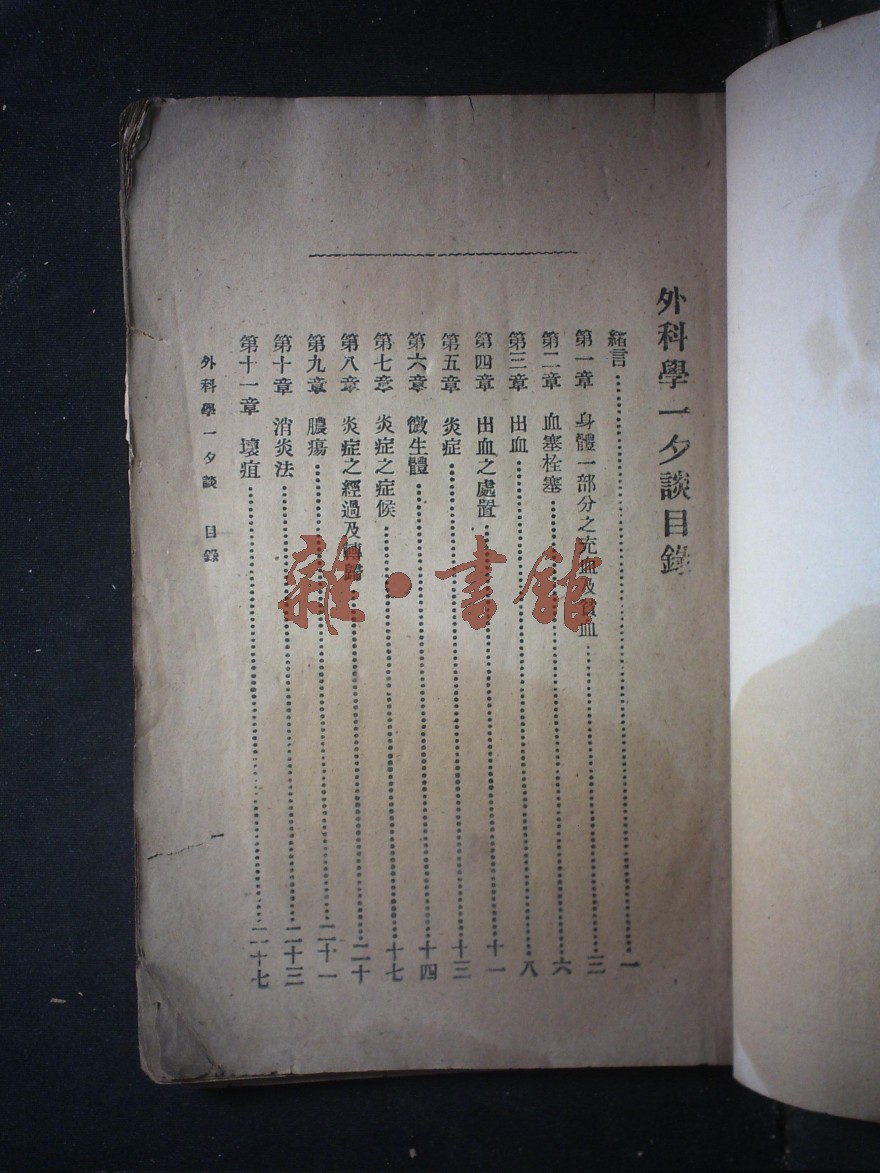 外科學一夕談目錄
緒言……一
第一章　身體一部分之充血及貧血……三
第二章　血塞栓塞……六
第三章　出血……八
第四章　出血之處置……十一
第五章　炎症……十三
第六章　微生體……十四
第七章　炎症之症候……十七
第八章　炎症之經過及轉歸……二十
第九章　膿瘍……二十一
第十章　消炎法……二十三
第十一章　壞疽……二十七
外科學一夕談　目錄
一
雜·書館